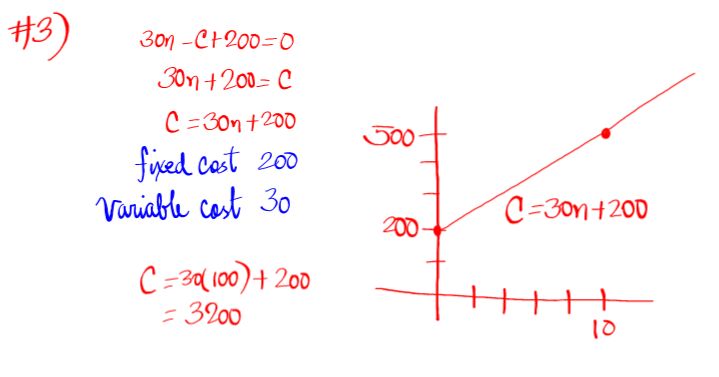 #3)
30n - C + 200 = 0
30n + 200 = C
C = 30n + 200
fixed cost 200
variable cost 30
C = 30(100) + 200
= 3200
500
200
C = 30n + 200
10